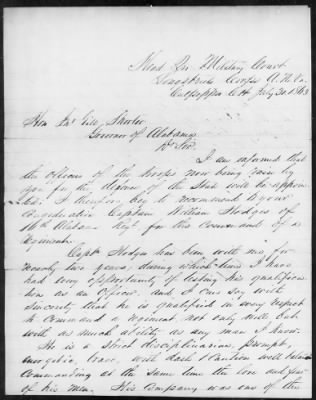 Head Qrs Military Court
Longstreets Corps A.N.Va.
Culpepper C.H. July 30. 1863
Hon Jno Gill Shorter
Governor of Alabama
Dr Sir.
I am informed that
the officers of the troops now being raised by
you for the defence of the State will be appoin-
ted. I therefore beg to recommend to your
consideration Captain William Hodges of
Alabama Regt for the Command of a
regiment.
Capt Hodges has been with me for
nearly two years, during which time I have
had every opportunity of testing his qualifica-
tion as an officer. and I can say with
sincerity that he is qualified in every respect
to Command a regiment, not only well but
with as much ability as any man I know.
He is a strict disciplinarian, prompt,
energetic, brave, with dash & Caution well
Commanding at the same time the love and fear
of his men. His Company was one of the